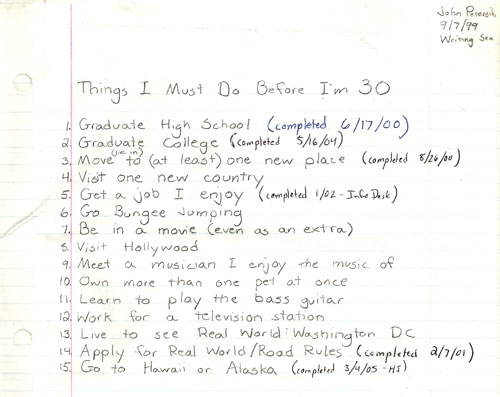 John Petersik
9/7/99
Writing Sem
Things I Must Do Before I'm 30
1. Graduate High School (completed 6/17/00)
2. Graduate College (completed 5/16/04)
(live in)
3. Move to (at least) one new place (completed 8/26/00)
4. Visit one new country
5. Get a job I enjoy (completed 1/02 - Info Desk)
6. Go Bungee Jumping
7. Be in a movie (even as an extra)
8. Visit Hollywood
9. Meet a musician I enjoy the music of
10. Own more than one pet at once
11. Learn to play the bass guitar
12. Work for a television station
13. Live to see Real World: Washington DC
14. Apply for Real World/Road Rules (completed 2/7/01)
15. Go to Hawaii or Alaska (completed 3/4/05 - HI)